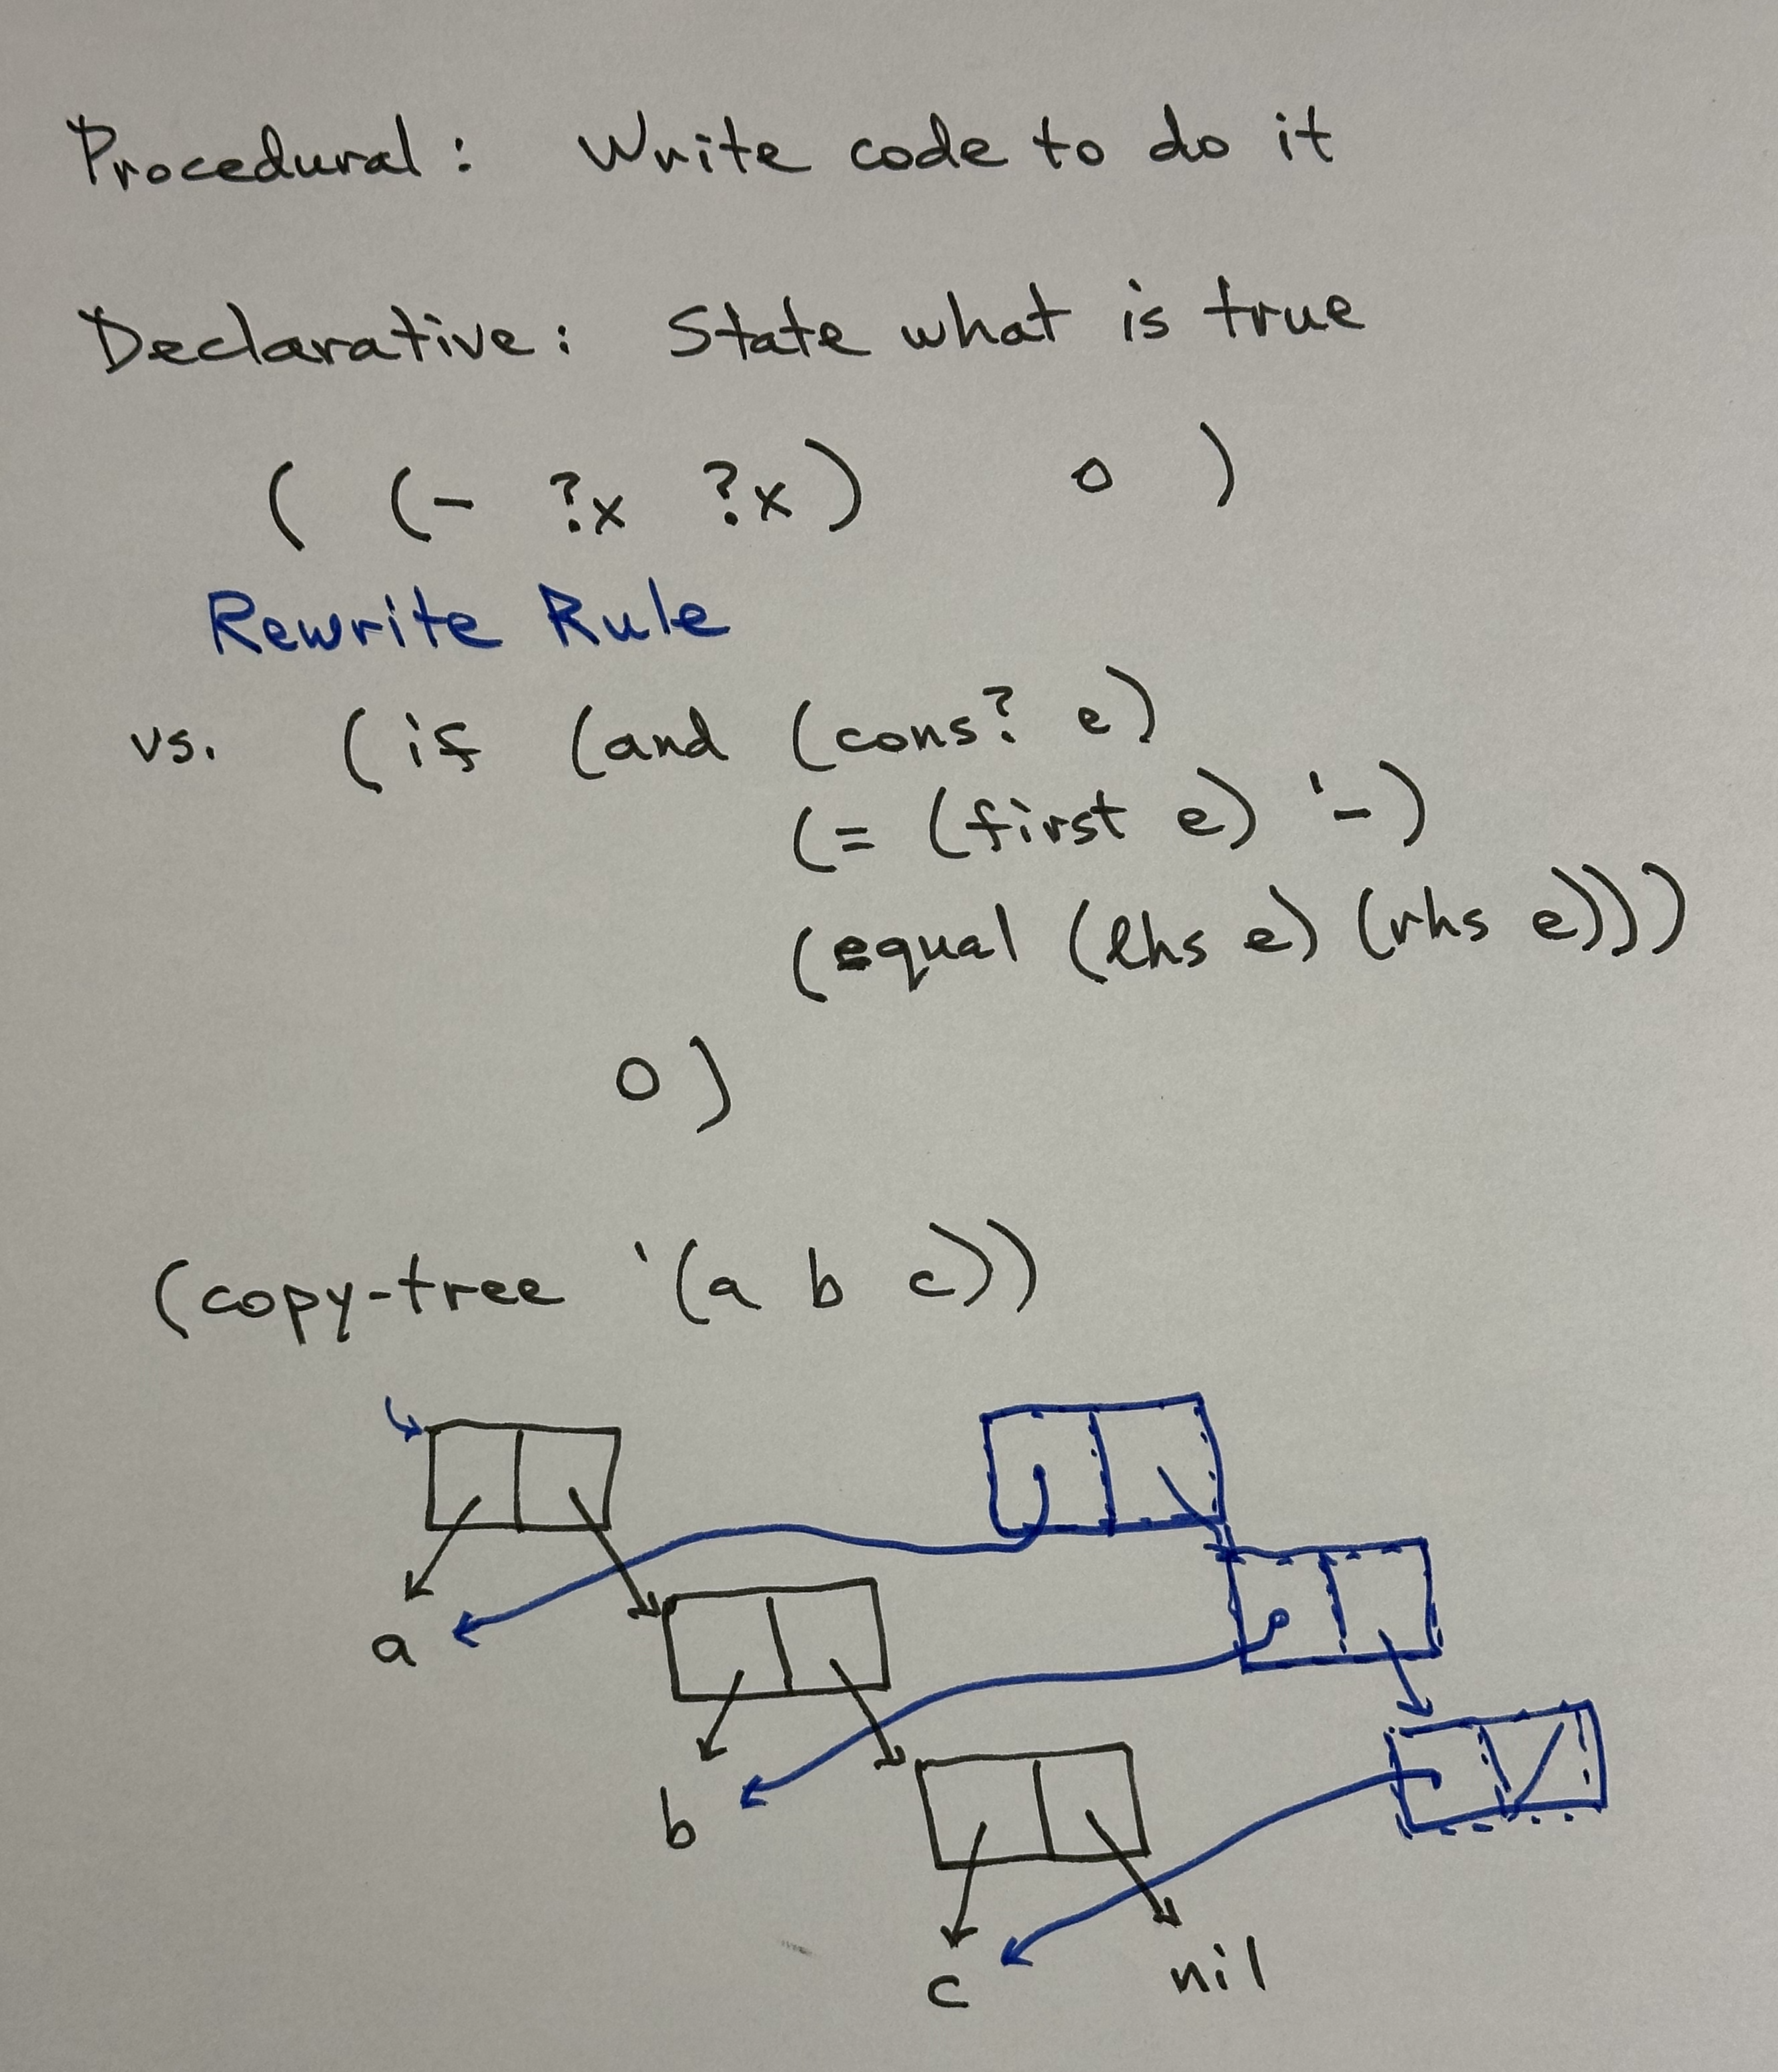 Procedural: Write code to do it
Declarative: State what is true
( (- ?x ?x) 0 )
Rewrite Rule
vs. (if (and (cons? e)
(= (first e) '-)
(equal (lhs e) (rhs e)))
0)
(copy-tree '(a b c))
a
b
c nil